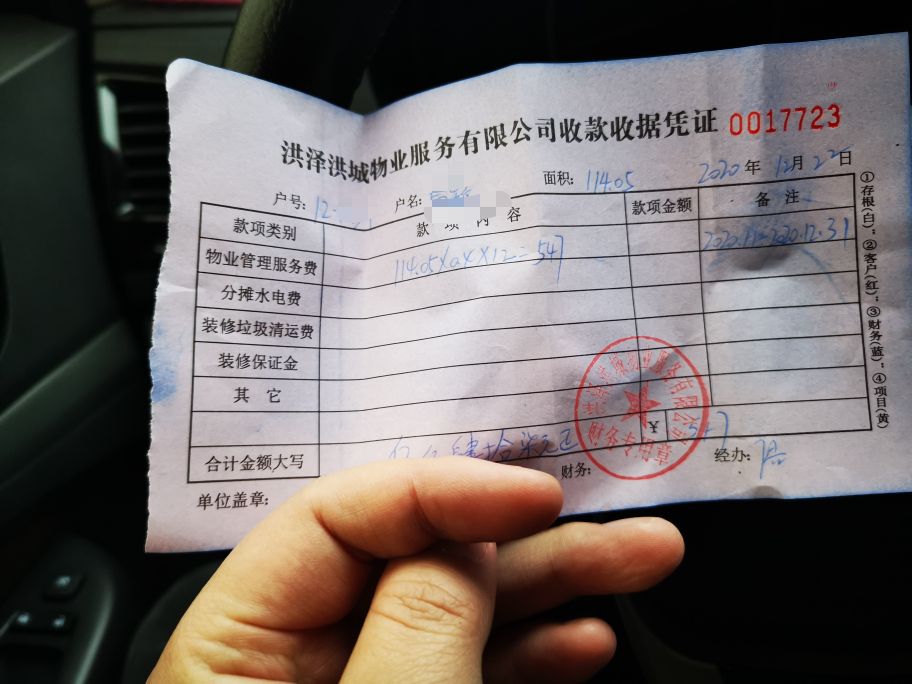 洪泽洪城物业服务有限公司收款收据凭证 0017723
户号: 12- 户名: 面积: 114.05 2020年12月22日
款项类别 款项内容 款项金额 备注
物业管理服务费 114.05X0.4X12=547
分摊水电费
装修垃圾清运费
装修保证金
其它
合计金额大写 肆拾柒元正 ¥ 547
单位盖章: 财务: 经办:
①存根(白);②客户(红);③财务(蓝);④项目(黄)